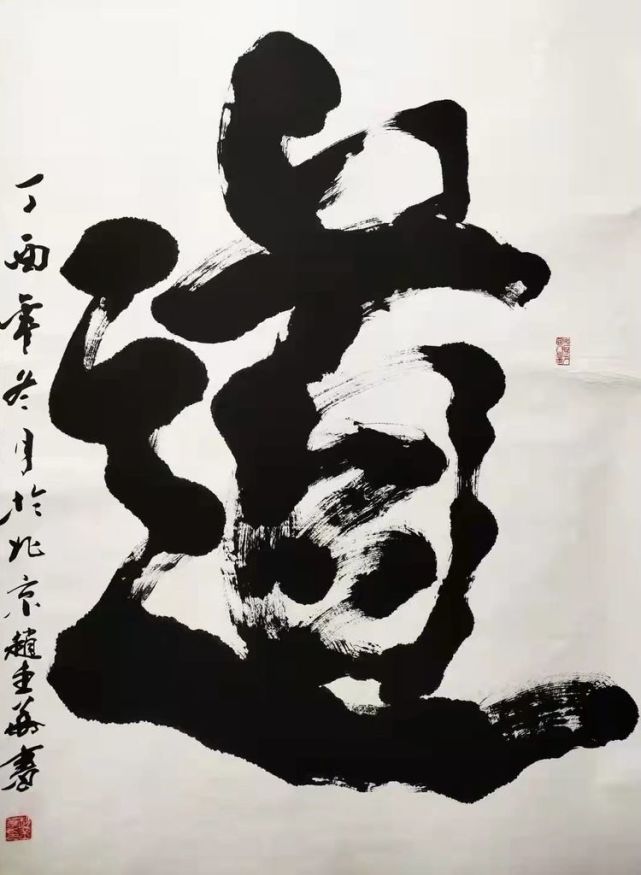 道
丁酉年冬月於北京趙書